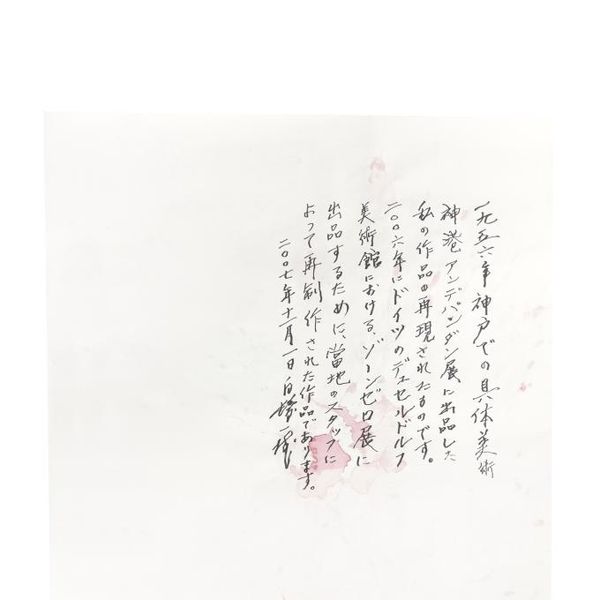 一九五六年神戸での具体美術
神港アンデパンダン展に出品した
私の作品の再現されたものです。
二〇〇六年にドイツのデュセルドルフ
美術館における、ゾーンゼロ展に
出品するために、當地のスタッフに
よって再創作された作品であります。
二〇〇七年十一月一日白髪一雄